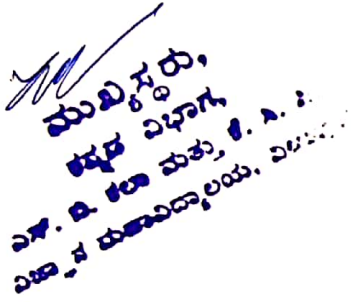 ಮುಖ್ಯಸ್ಥರು,
ಕನ್ನಡ ವಿಭಾಗ,
ಎಸ್. ಬಿ. ಕಲಾ ಮತ್ತು
ವಿಜ್ಞಾನ ಮಹಾವಿದ್ಯಾಲಯ,